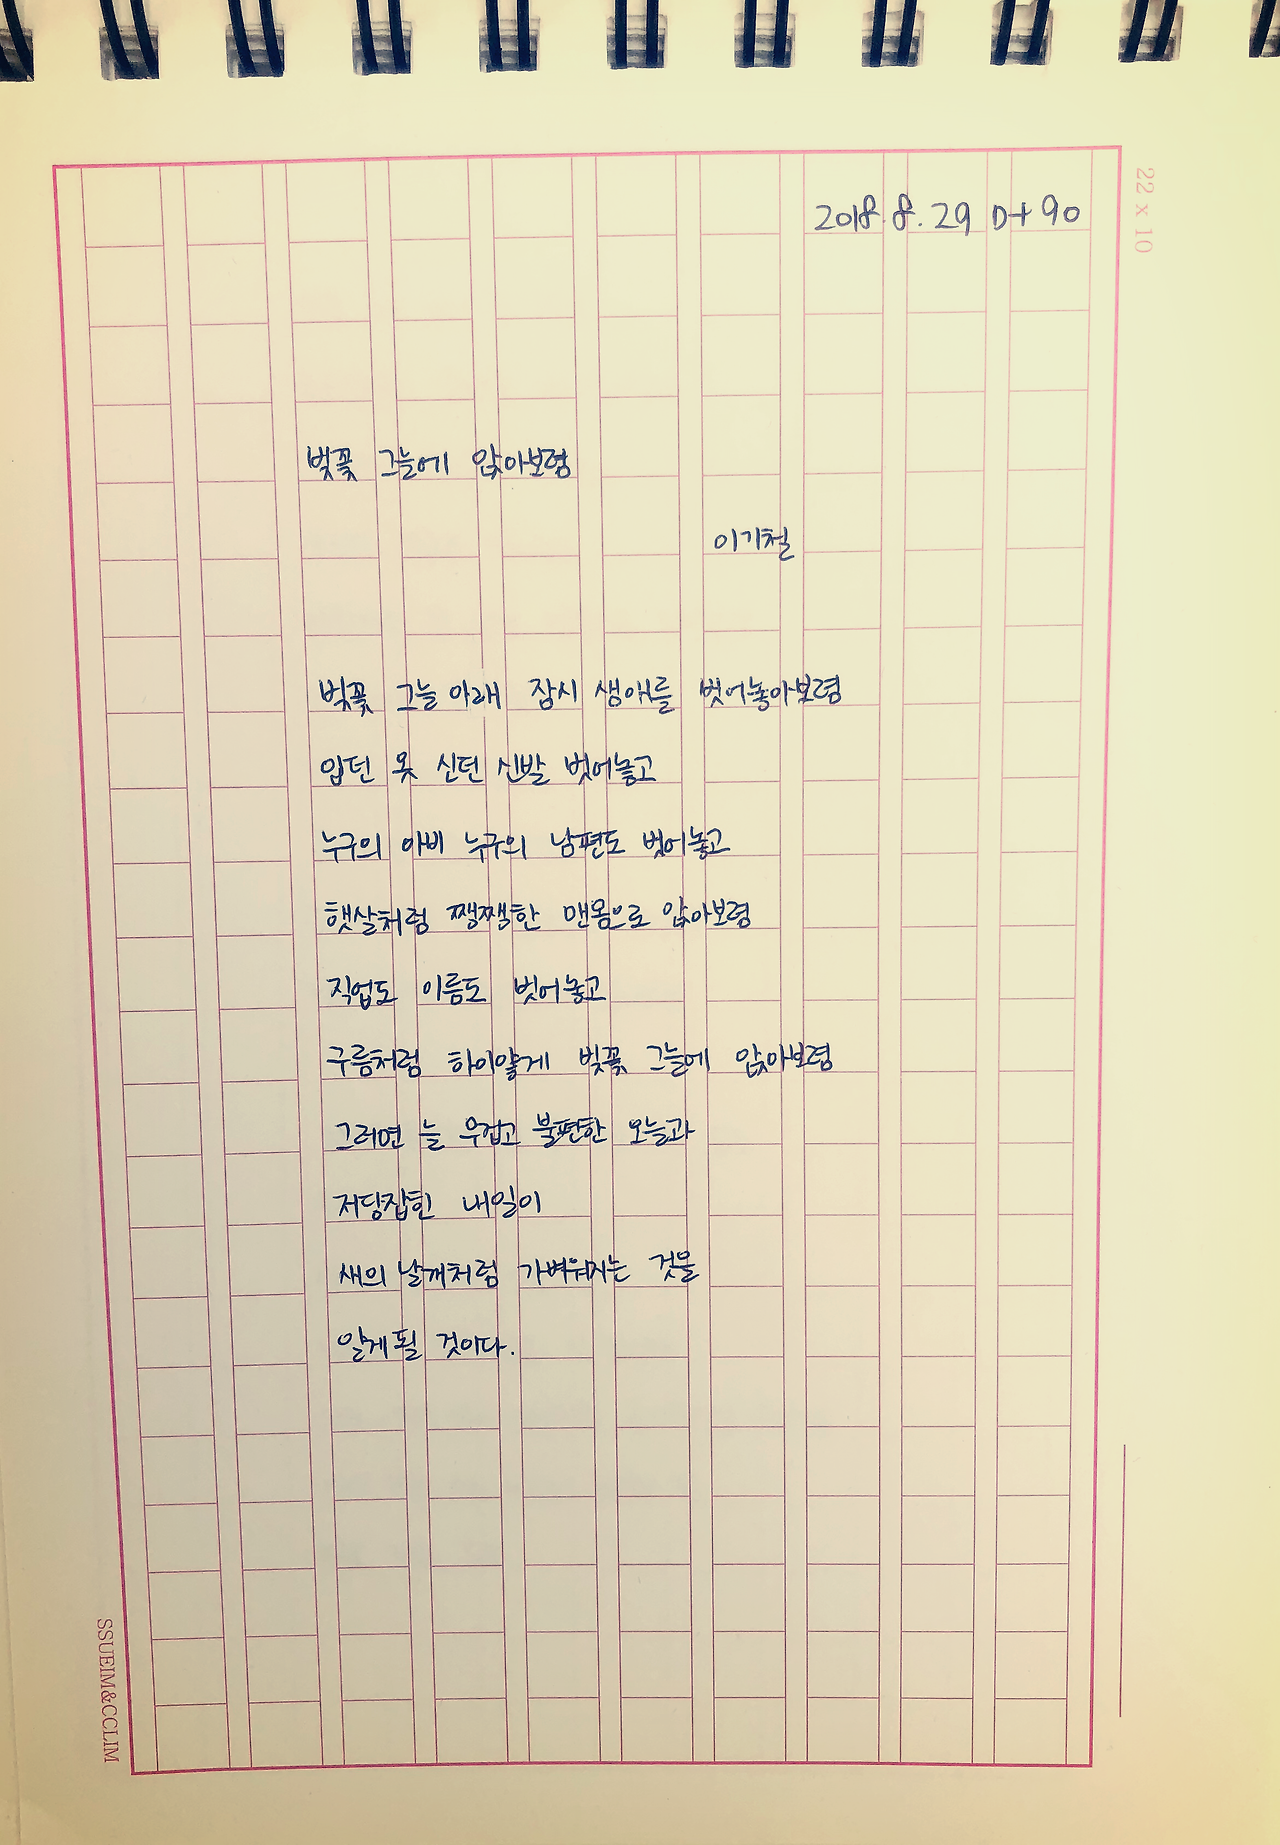 22 x 10
2018. 8. 29 D+90
벚꽃 그늘에 앉아보렴
이기철
벚꽃 그늘 아래 잠시 생애를 벗어놓아보렴
입던 옷 신던 신발 벗어놓고
누구의 아비 누구의 남편도 벗어놓고
햇살처럼 쨍쨍한 맨몸으로 앉아보렴
직업도 이름도 벗어놓고
구름처럼 하이얗게 벚꽃 그늘에 앉아보렴
그러면 늘 무겁고 불편한 오늘과
저당잡힌 내일이
새의 날개처럼 가벼워지는 것을
알게 될 것이다.
SSUEIM&CCLIM